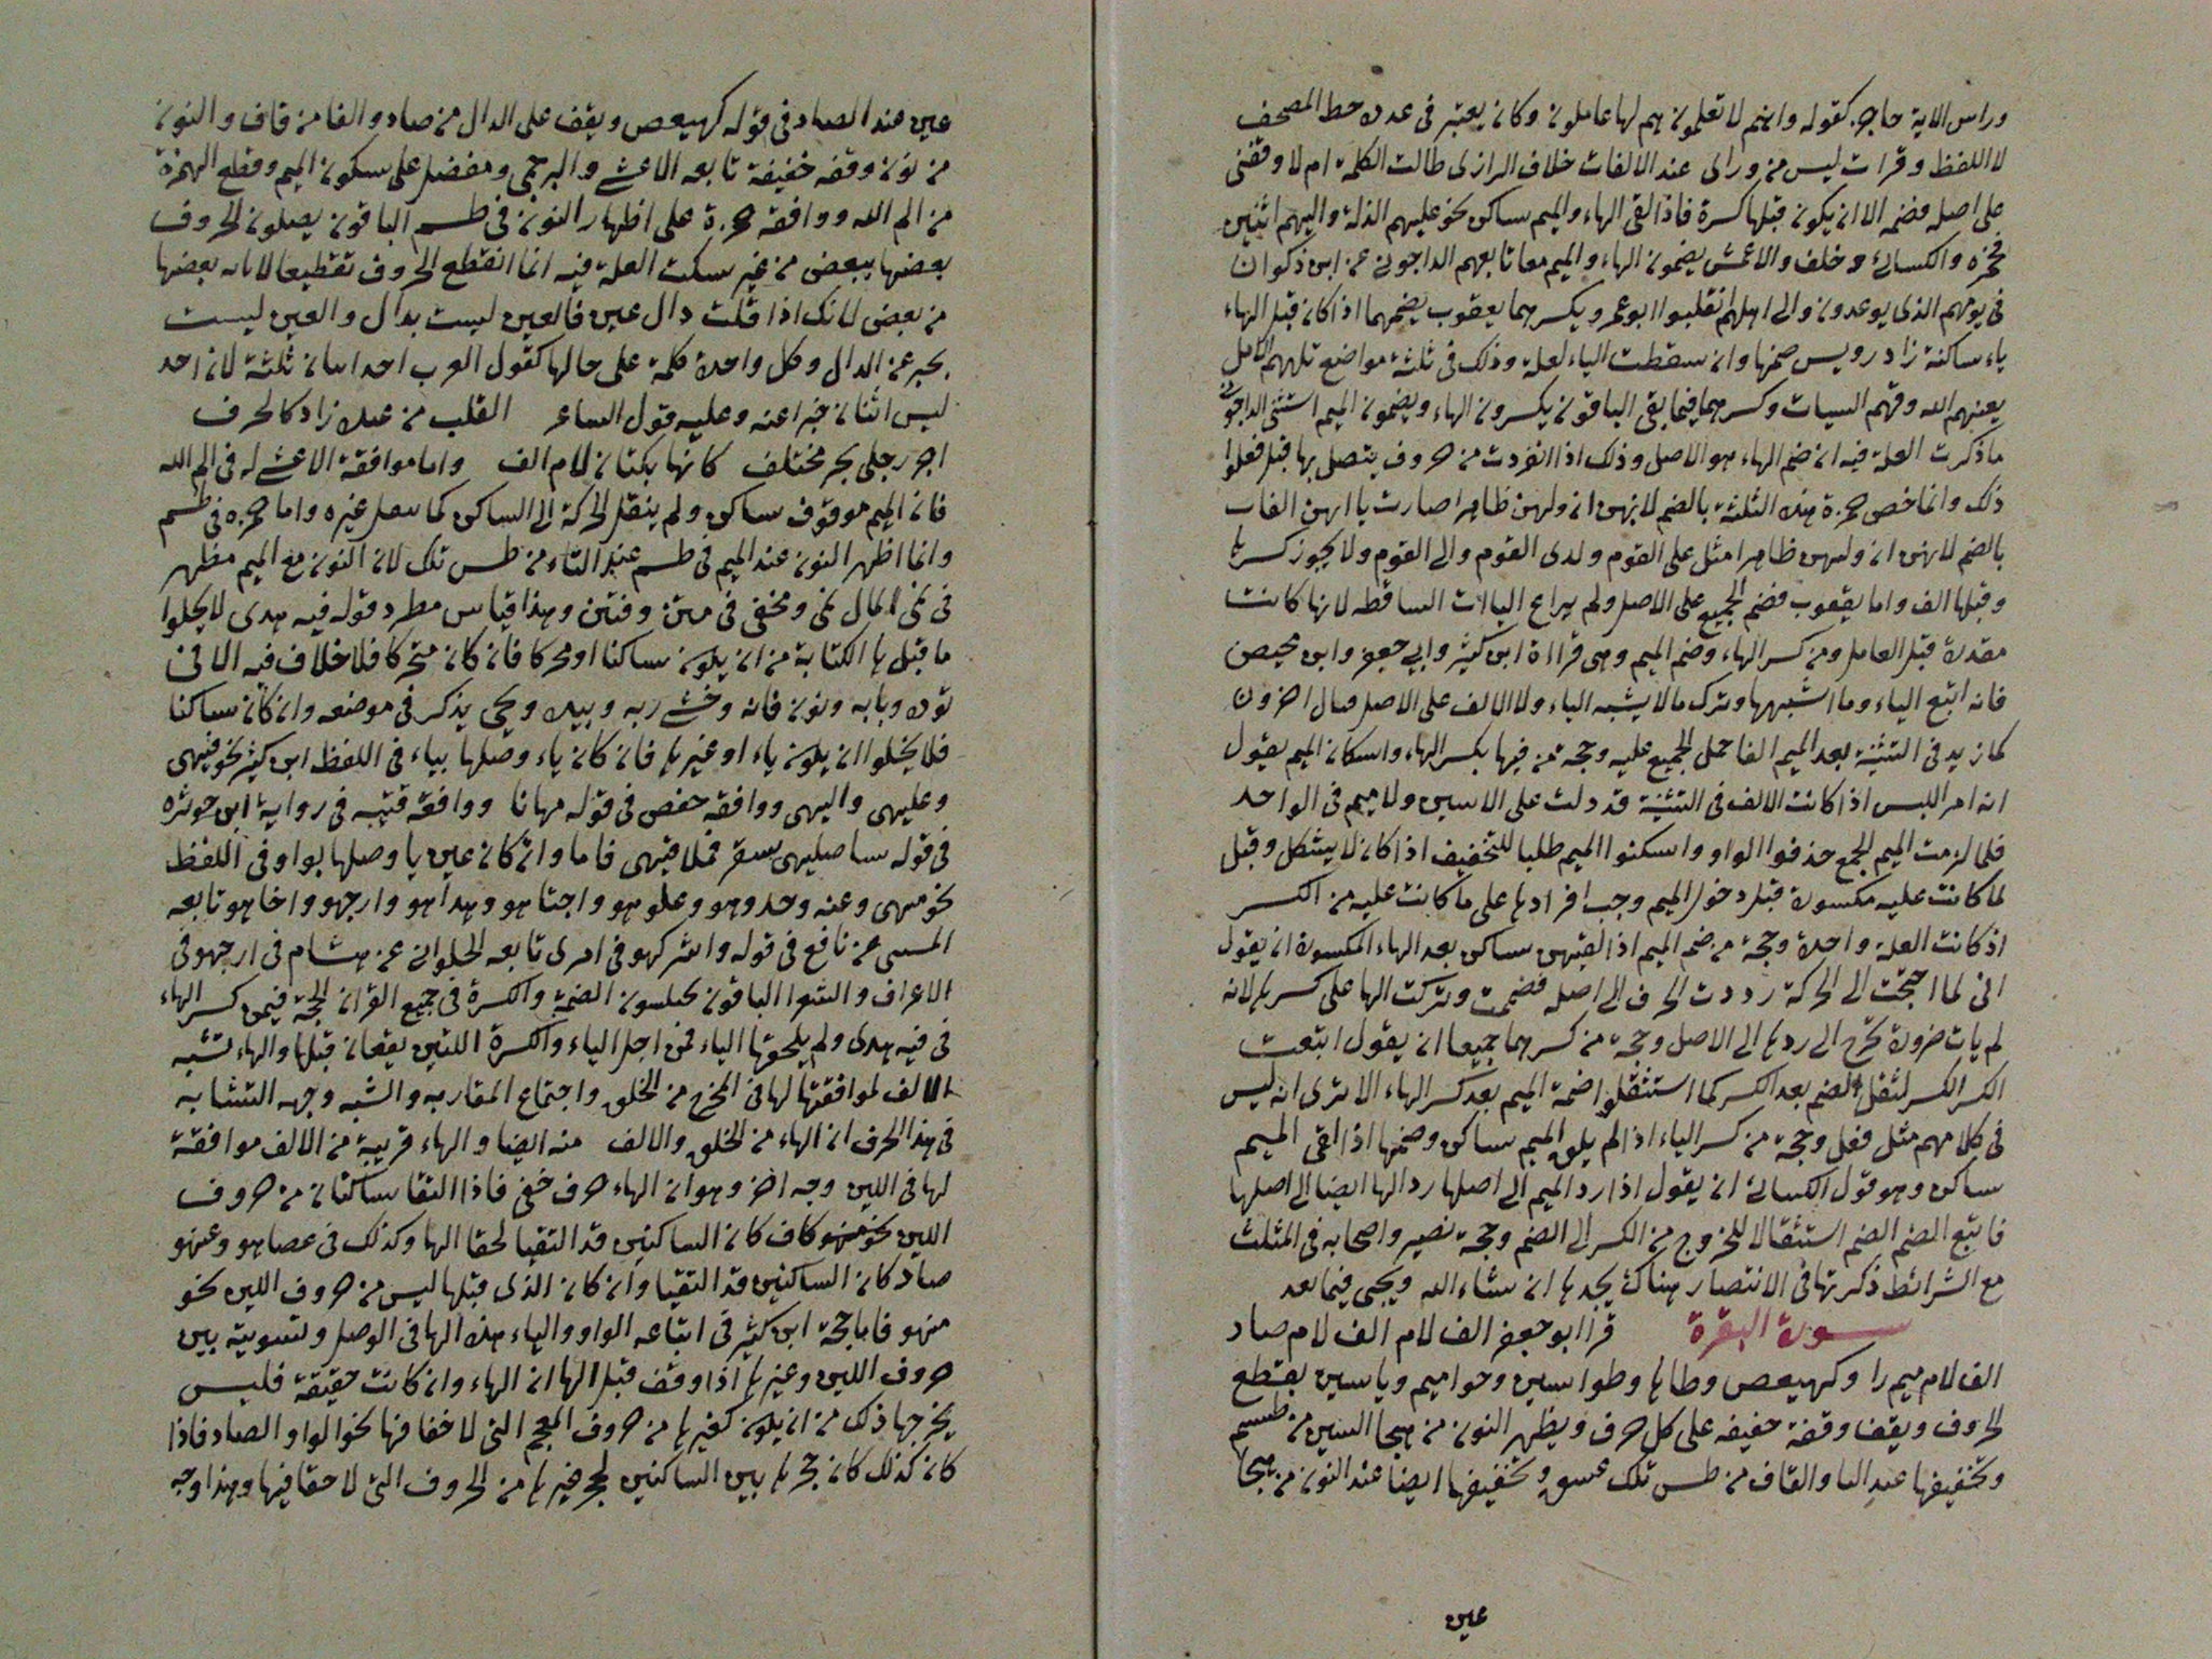 وراس الاية حاجز كقوله وانتم لا تعلمون هم لها عاملون وكان يعتبر فى عدد خط المصحف
لا اللفظ وقرات ليس من وراى عند الالفات خلاف الرازى طالت الكلمة ام لا وقفنى
على اصله فضمه الا ان يكون قبلها كسرة فاذا لقى الهاء والميم ساكن نحو عليهم الذلة واليهم اثنين
فحمزه والكسائى وخلف والاعمش يضمون الهاء والميم معا تابعهم الداجونى عن ابن ذكوان
فى يومهم الذى يوعدون والى اهلهم انقلبوا ابو عمرو يكسرهما يعقوب يضمهما اذا كان قبل الهاء
ياء ساكنة زاد رويس ضمها وان سقطت الياء لعلة وذلك فى ثلثة مواضع تلههم الامل
يعنهم الله وقهم السيات وكسرهما فيما بقى الباقون يكسرون الهاء ويضمون الميم استثنى الداجونى
ما ذكرت العلة فيه ان ضم الهاء هو الاصل وذلك اذا انفردت من حروف يتصل بها قبل فعلوا
ذلك وانما خص حمزة هذه الثلثة بالضم لانهن ان ولهن ظاهر اصارت ياا هن الفات
بالضم لانهن ان وليهن ظاهرا مثل على القوم ولدى القوم والى القوم ولا يجوز كسرها
وقبلها الف واما يعقوب فضم الجميع على الاصل ولم يراع اليات الساقطه لانها كانت
مقدرة قبل العامل ومن كسر الهاء وضم الميم وهى قراءة ابن كثير وابي جعفر وابن محيصن
فانه اتبع الياء وما اشبهها وترك مالا يشبه الياء ولا الالف على الاصل وقال اخرون
كما زيد فى التثنية بعد الميم الفا حمل الجميع عليه وحجة من فيها بكسر الهاء واسكان الميم يقول
انه امر اللبس اذا كانت الالف فى التثنية قد دلت على الاسين ولا ميم فى الواحد
فلما لزمت الميم الجمع حذفوا الواو واسكنوا الميم طلبا للتخفيف اذا كان لا يشكل وقبل
لما كانت عليه مكسورة قبل دخول الميم وجب افرادها على ما كانت عليه من الكسر
اذ كانت العلة واحدة وحجة من ضم الميم اذا لقيهن ساكن بعد الهاء المكسورة ان يقول
انى لما احتجت الى الحركة رددت الحرف الى اصله فضممت وتركت الها على كسرها لانه
لم يات ضرورة تحرج الى ردها الى الاصل وحجة من كسرهما جميعا ان يقول اتبعت
الكسر الكسر لثقل الضم بعد الكسر كما استثقلوا ضمة الميم بعد كسر الهاء الا ترى انه ليس
فى كلامهم مثل فعل وحجة من كسر الهاء اذا لم يلق الميم ساكن وضمها اذا لقى الميم
ساكن وهو قول الكسائى ان يقول اذا رد الميم الى اصلها رد الها ايضا الى اصلها
فاتبع الضم الضم استثقالا للخروج من الكسر الى الضم وحجة نصير واصحابه فى المثلث
مع الشرائط ذكرتها فى الانتصار هناك يجدها ان شاء الله ويجى فيما بعد
سورة البقرة قرا ابو جعفر الف لام الف لام صاد
الف لام ميم را وكهيعص وطاها وطواسين وحواميم وياسين يقطع
الحروف ويقف وقفة خفيفه على كل حرف ويظهر النون من هجا السين من طسم
وتخفيفها عند التا والقاف من طس تلك عسق وتخفيفها ايضا عند النون من هجا
عين
عين عند الصاد فى قوله كهيعص ويقف على الدال من صاد والفا من قاف والنون
من نون وقفه خفيفة تابعه الاعشى والبرجمى ومفضل على سكون الميم وقطع الهمزة
من الم الله ووافقه حمزة على اظهار النون فى طسم الباقون يصلون الحروف
بعضها ببعض من غير سكت العلة فيه انما انقطع الحروف تقطيعا لابانه بعضها
من بعض لانك اذا قلت دال عين فالعين ليست بدال والعين ليست
بخبر عن الدال وكل واحدة كلمة على حالها كقول العرب احد اثنان ثلثة لان احد
ليس اثنان خبرا عنه وعليه قول الشاعر القلب من عبلة زاد كالخرف
اجر رجلى بحر مختلف كانها يكتبان لام الف واما موافقة الاعشى له فى الم الله
فان الميم موقوف ساكن ولم ينقل الحركة الى الساكن كما يفعل غيره واما حمزه فى طسم
وانما اظهر النون عند الميم فى طسم عند التاء من طس تلك لان النون مع الميم مظهر
فى نمى المال نمى ومخفى فى متن وفتن وهذا قياس مطرد قوله فيه هدى لا يخلوا
ما قبل ها الكتابة من ان يكون ساكنا او محركا فان كان متحركا فلا خلاف فيه الا فى
يؤده وبابه ونون فانه وخشى ربه وبيده ويحى يذكر فى موضعه وان كان ساكنا
فلا يخلوا ان يكون ياء او غيرها فان كان ياء وصلها بياء فى اللفظ ابن كثير نحو فيهى
وعليهى واليهى ووافقه حفص فى قوله مهانا ووافقه قتيبه فى رواية ابن حوثره
فى قوله ساصليهى سقر فملاقيهى فاما وان كان عين يا وصلها بواو فى اللفظ
نحو منهى وعنه وخذوهو وعلوهو واجتباهو وهداهو وارجهو واخاهو تابعه
المسى عن نافع فى قوله واشركهو فى امرى تابعه الحلوانى عن هشام فى ارجهو فى
الاعراف والشعرا الباقون يختلسون الضمة والكسرة فى جميع القران الحجة فيمن كسر الهاء
فى فيه هدى ولم يلحقها الياء فمن اجل الياء والكسرة اللتين يقعان قبلها والهاء تشبه
الالف لموافقتها لها فى المخرج من الحلق واجتماع المقاربه والشبه وجهه التشابه
فى هذا الحرف ان الهاء من الحلق والالف منه ايضا والهاء قريبة من الالف موافقة
لها فى اللين وجه اخر وهو ان الهاء حرف خفى فاذا التقا ساكنان من حروف
اللين نحو منهو كاف كان الساكنين قد التقيا لخفا الها وكذلك فى عصاهو وعنهو
صاد كان الساكنين قد التقيا وان كان الذى قبلها ليس من حروف اللين نحو
منهو فاما حجة ابن كثير فى اتباعه الواو والياء هذه الها فى الوصل ولتسوية بين
حروف اللين وغيرها اذا وقف قبل الها ان الهاء وان كانت خفيفة فليس
يخرجها ذلك من ان يكون كغيرها من حروف المعجم التى لا خفا فيها نحو الواو والصاد فاذا
كان كذلك كان حجزها بين الساكنين لحجز غيرها من الحروف التى لا خفا فيها وهذا وجه